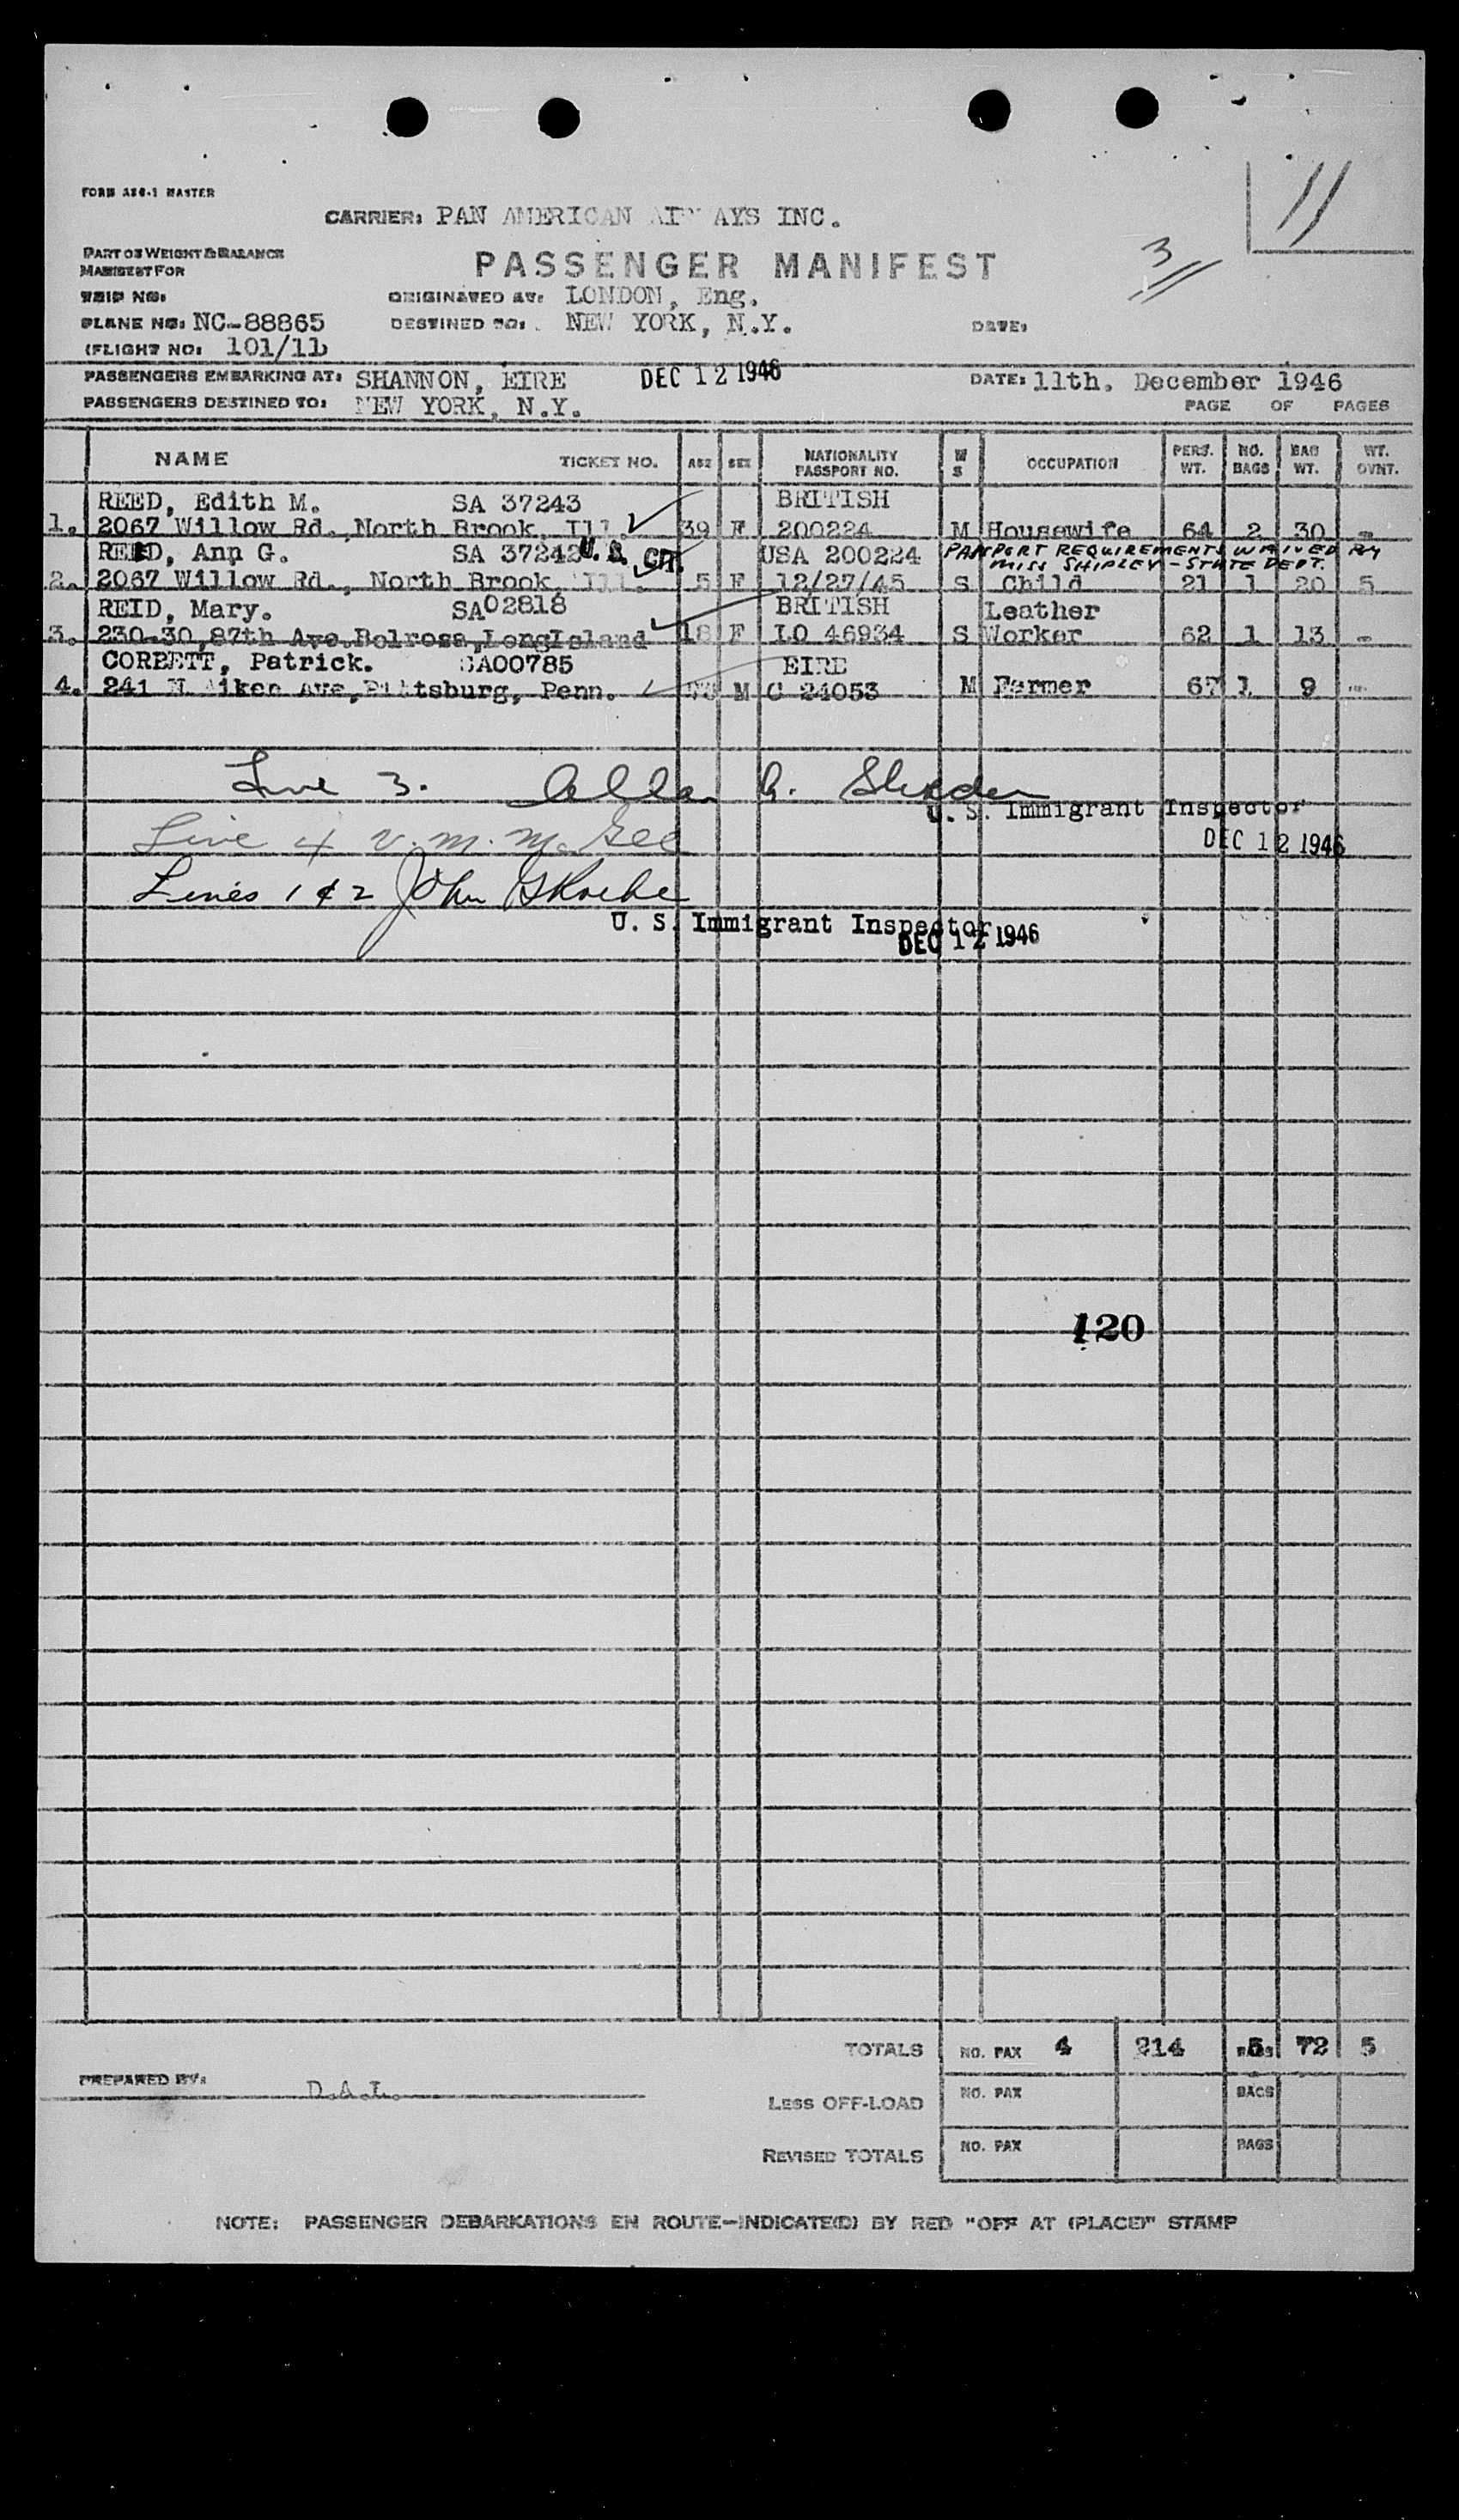 FORM ASG-1 MASTER
11
CARRIER: PAN AMERICAN AIRWAYS INC.
PART OF WEIGHT & BALANCE
MANIFEST FOR
PASSENGER MANIFEST
3
TRIP NO:
ORIGINATED AT: LONDON, Eng.
PLANE NO: NC-88865
DESTINED TO: NEW YORK, N.Y.
DATE:
(FLIGHT NO: 101/11
PASSENGERS EMBARKING AT: SHANNON, EIRE
DEC 12 1946
DATE: 11th. December 1946
PASSENGERS DESTINED TO: NEW YORK, N.Y.
PAGE OF PAGES
NAME TICKET NO. AGE SEX NATIONALITY PASSPORT NO. M S OCCUPATION PERS. WT. NO. BAGS BAG WT. WT. OVNT.
REED, Edith M. SA 37243 BRITISH
1. 2067 Willow Rd., North Brook, Ill. 39 F 200224 M Housewife 64 2 30 -
REED, Ann G. SA 37242 U.S. CIT. USA 200224 PASSPORT REQUIREMENTS WAIVED BY
MISS SHIPLEY - STATE DEPT.
2. 2067 Willow Rd., North Brook, Ill. 5 F 12/27/45 S Child 21 1 20 5
REID, Mary. SA02818 BRITISH Leather
3. 230-30, 87th Ave. Belrose, LongIsland 18 F LO 46934 S Worker 62 1 13 -
CORBETT, Patrick. SA00785 EIRE
4. 241 N Aiken Ave, Pittsburg, Penn. M C 24053 M Farmer 67 1 9 -
Line 3. Allan
U. S. Immigrant Inspector
Line 4 V. M. McGee
DEC 12 1946
Lines 1 & 2 John
U. S. Immigrant Inspector
DEC 12 1946
120
TOTALS NO. PAX 4 214 BAGS 5 72 5
PREPARED BY:
LESS OFF-LOAD NO. PAX BAGS
REVISED TOTALS NO. PAX BAGS
NOTE: PASSENGER DEBARKATIONS EN ROUTE-INDICATE(D) BY RED "OFF AT (PLACE)" STAMP